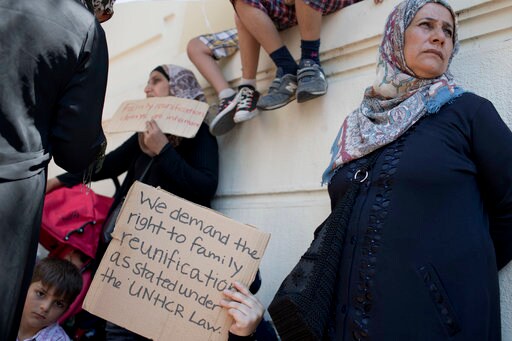 We demand the
right to family
reunification
as stated under
the UNHCR Law.